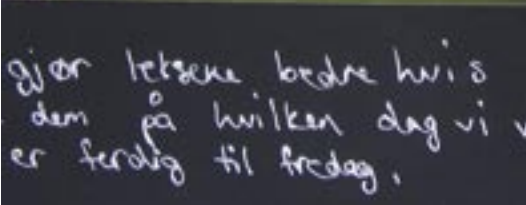 gjør leksene bedre hvis
dem på hvilken dag vi
er ferdig til fredag.